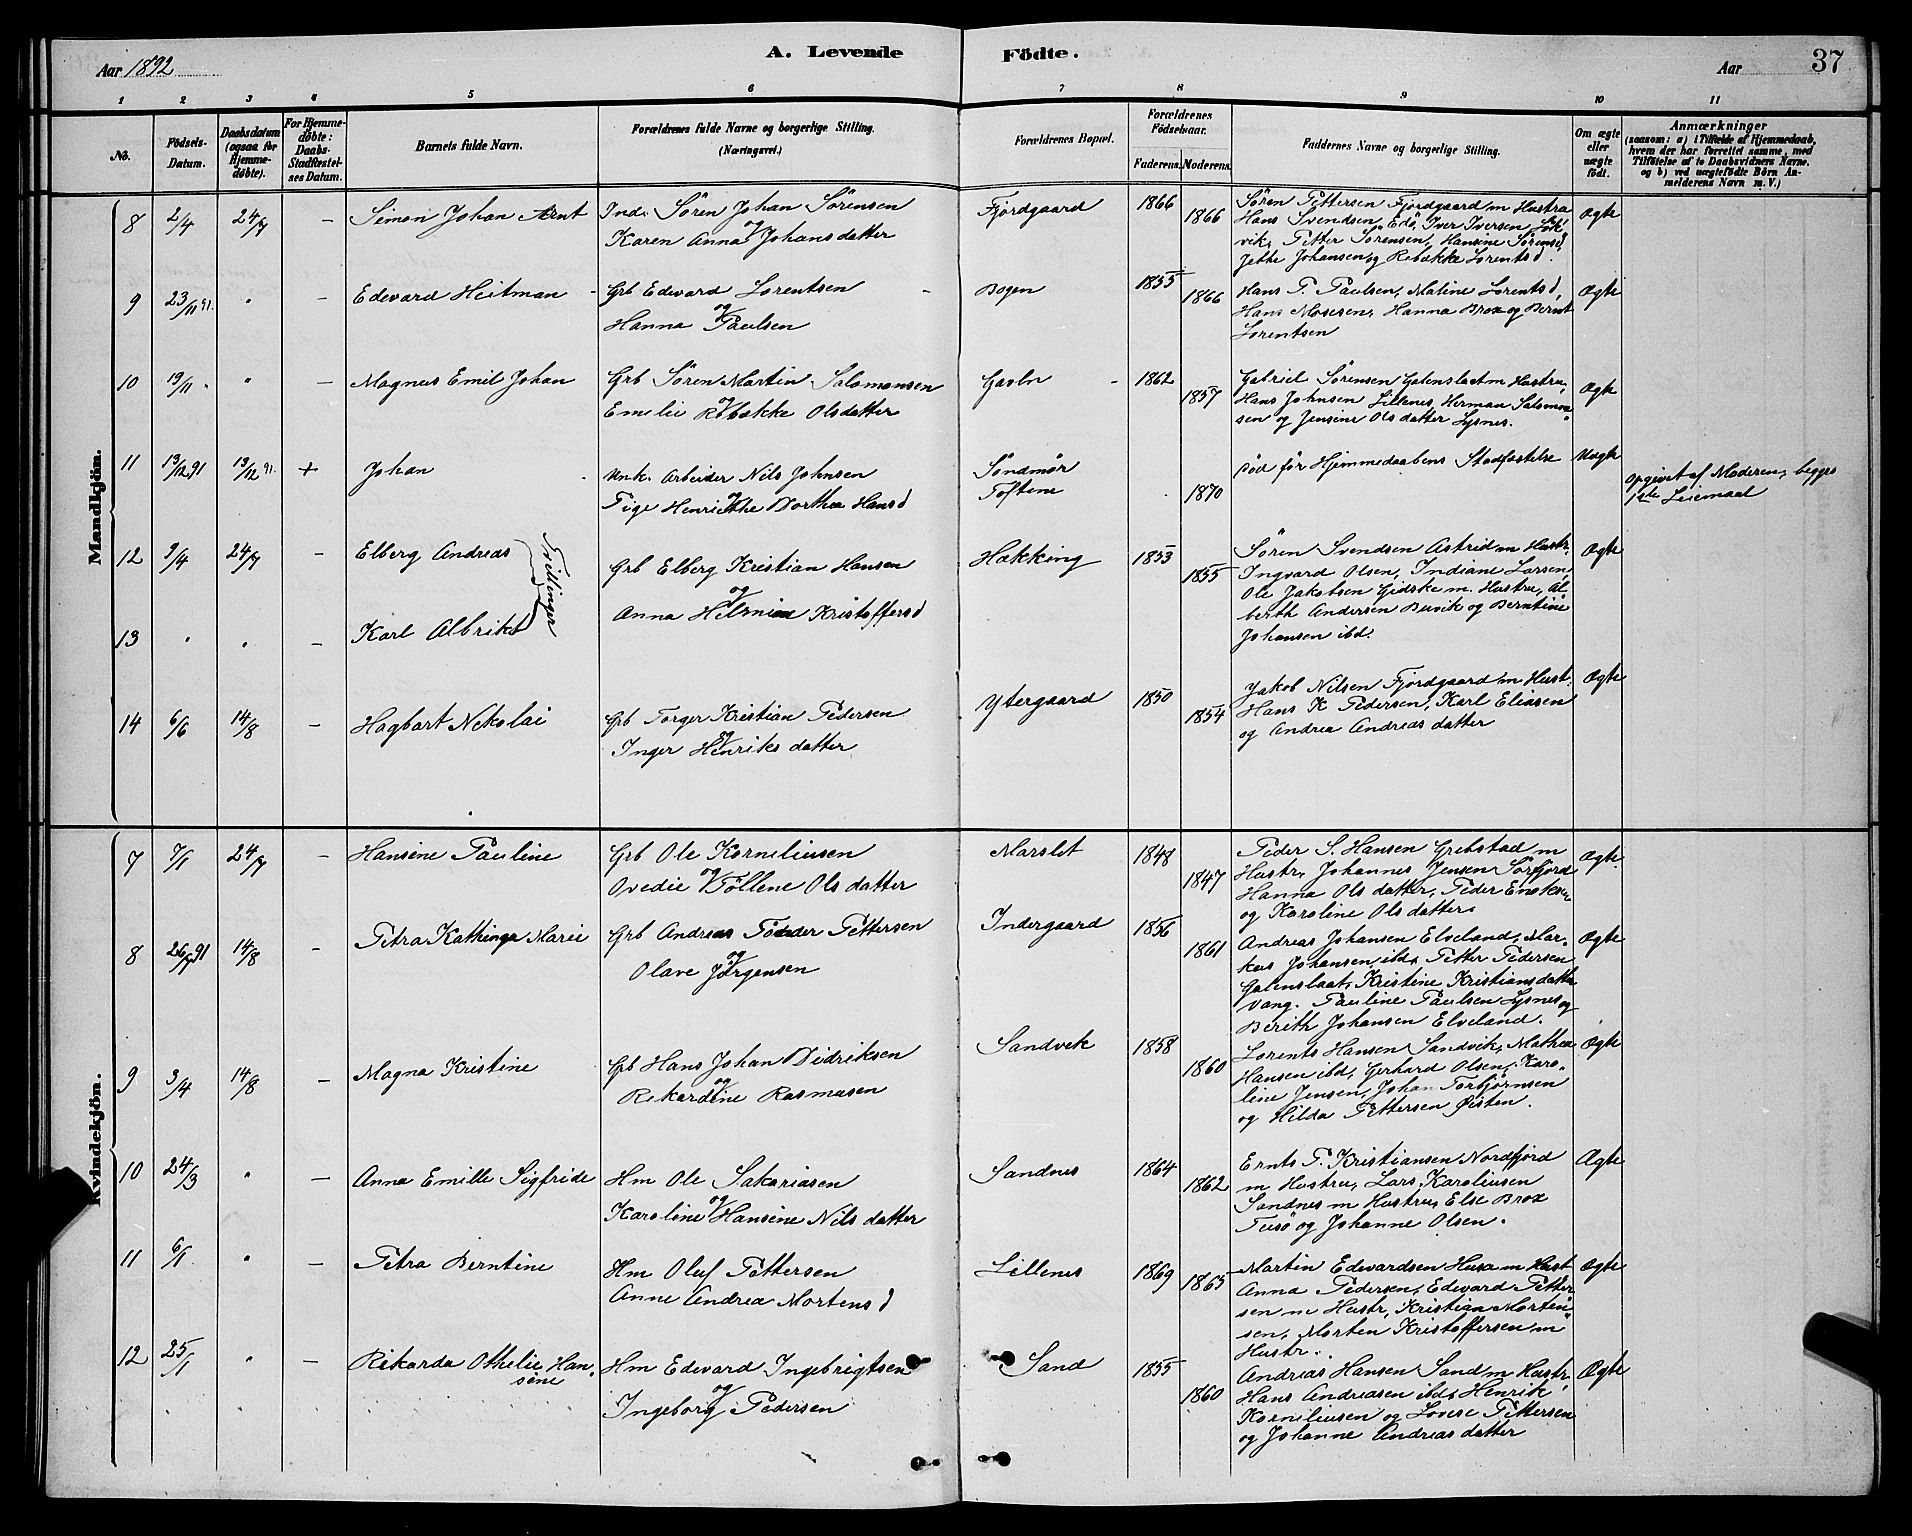 Aar 1892
A. Levende
Födte.
Aar
37
1 2 3 4 5 6 7 8 9 10 11
No.
Födsels-
Datum.
Daabsdatum
(ogsaa for
Hjemme-
døbte).
For Hjemme-
døbte:
Daabs-
Stadfæstel-
ses Datum.
Barnets fulde Navn.
Forældrenes fulde Navne og borgerlige Stilling.
(Næringsvei.)
Forældrenes Bopæl.
Forældrenes
Födselsaar.
Faderens. Moderens.
Faddernes Navne og borgerlige Stilling.
Om ægte
eller
uægte
födt.
Anmærkninger
(saasom: a) i Tilfælde af Hjemmedaab,
hvem der har forrettet samme, med
Tilføielse af to Daabsvidners Navne,
og b) ved uægtefödte Börn An-
melderens Navn m. V.)
Mandkjön.
8 2/4 24/7 – Simon Johan Arnt
Ind. Sören Johan Sörensen
og
Karen Anna Johansdatter
Fjordgaard 1866 1866
Sören Pettersen Fjordgaard m Hustru
Hans Svendsen, Edö, Iver Iversen
vik, Petter Sörensen, Hansine Sörensd,
Jette Johansen og Rebekke Lorentsd.
Ægte
9 23/11 91. " – Edevard Heitman
Grb Edevard Lorentsen
og
Hanna Paulsen
Bogen 1855 1866
Hans P. Paulsen, Maline Lorentsd,
Hans Mosesen, Hanna Brox og Bernt
Lorentsen
Ægte
10 19/11 " " – Magnus Emil Johan
Grb Sören Martin Salomonsen
og
Emelie Rebekke Olsdatter
Gavln 1862 1857
Gabriel Sörensen Galenslaet m Hustru,
Hans Johnsen Lillenes, Herman Salomon
sen og Jensine Olsdatter Lysnes.
Ægte
11 13/12 91 19/12 91. + Johan
Unk. Arbeider Nils Johnsen
og
Pige Henriethe Dorthea Hansd
Söndmör
Toften 1870
Död før Hjemmedaabens Stadfæstelse
Uægte
Opgivet af Moderen, begges
1ste Leiemaal
12 9/4 24/7 – Elberg Andreas
Tvillinger
Grb Elberg Kristian Hansen
og
Anna Helmine Kristoffersd
Hekking 1853 1855
Sören Svendsen Astrid m Hustr.
Ingvard Olsen, Indiane Larsen,
Ole Jakobsen Gidske m. Hustru, Al-
berth Andersen Buvik og Berntine
Johansen ibd.
Ægte
13 " " – Karl Albrikt
14 6/6 14/8 – Hagbart Nekolai
Grb Torger Kristian Pedersen
og
Inger Henriksdatter
Ytergaard 1850 1854
Jakob Nilsen Fjordgaard m Hust.
Hans K Pedersen, Karl Eliasen
og Andrea Andreasdatter
Ægte
Kvindekjön.
7 7/1 24/7 – Hansine Pauline
Grb Ole Korneliusen
og
Ovedie Pöllene Olsdatter
Marslet 1848 1847
Peder S. Hansen Grebstad m
Hustr, Johannes Jensen Sörfjord
Hanna Olsdatter, Peder
og Karoline Olsdatter.
Ægte
8 91 14/8 – Petra Kathinga Marie
Grb Andreas Peder Pettersen
og
Olave Jörgensen
Indergaard 1856 1861
Andreas Johansen Elveland, Mar-
kus Johansen ibd, Petter Pedersen
Galenslaat, Kristine Kristiansdatter
Vang. Pauline Paulsen Lysnes og
Berith Johansen Elveland.
Ægte
9 3/4 14/8 – Magna Kristine
Grb Hans Johan Didriksen
og
Rikardine Rasmusen
Sandvik 1858 1860
Lorents Hansen Sandvik, Mathea
Hansen ibd, Gerhard Olsen, Karo-
line Jensen, Johan Torbjörnsen
og Hilda Pettersen Øisten.
Ægte
10 24/3 " – Anna Emille Sigfride
Hm Ole Sakariasen
og
Karoline Hansine Nilsdatter
Sandnes 1864 1862
Ernts P. Kristiansen Nordfjord
m Hustru, Lars Karoliusen
Sandnes m Hustru, Else Brox
Tusö og Johanne Olsen.
Ægte
11 6/1 " – Petra Berntine
Hm Oluf Pettersen
Anne Andrea Mortensd
Lillenes 1869 1865
Martin Edevardsen Husa m Hust
Anna Pedersen, Edevard Petter
sen m Hustr, Kristian Morten
sen, Morten Kristoffersen m
Hustr.
Ægte
12 25/1 " – Rikarda Othelie Han-
sine
Hm Edevard Ingebrigtsen
og
Ingeborg Pedersen
Sand 1855 1860
Andreas Hansen Sand m Hustr,
Hans Andreasen ibd, Henrik
Korneliusen og Lovise Pettersen
og Johanne Andreasdatter
Ægte